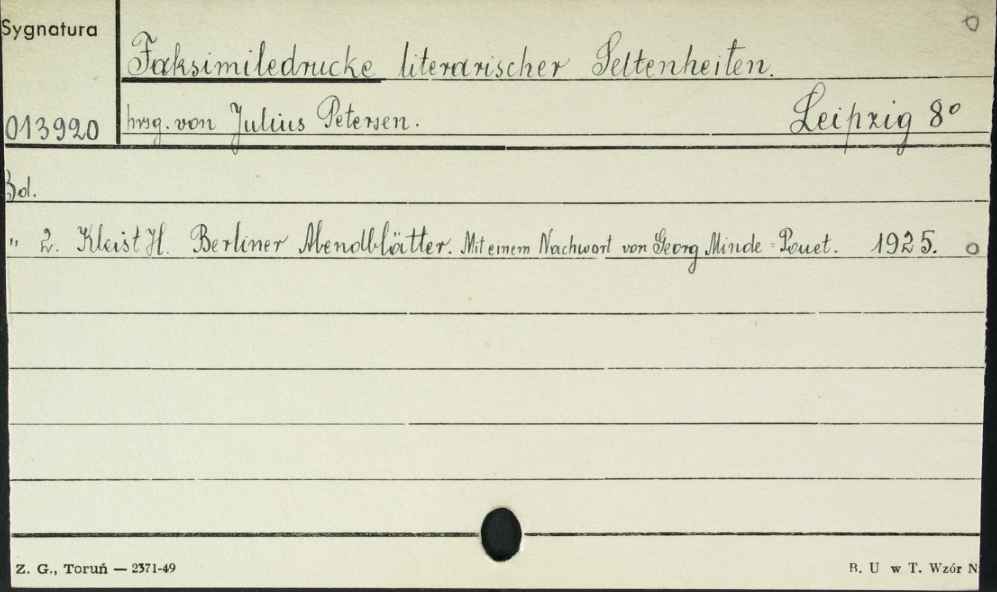 Sygnatura
Faksimiledrucke literarischer Seltenheiten.
013920 hrsg. von Julius Petersen. Leipzig 8°
Bd.
" 2. Kleist H. Berliner Abendblätter. Mit einem Nachwort von Georg Minde-Pouet. 1925.
Z. G., Toruń — 2371-49 B. U w T. Wzór N